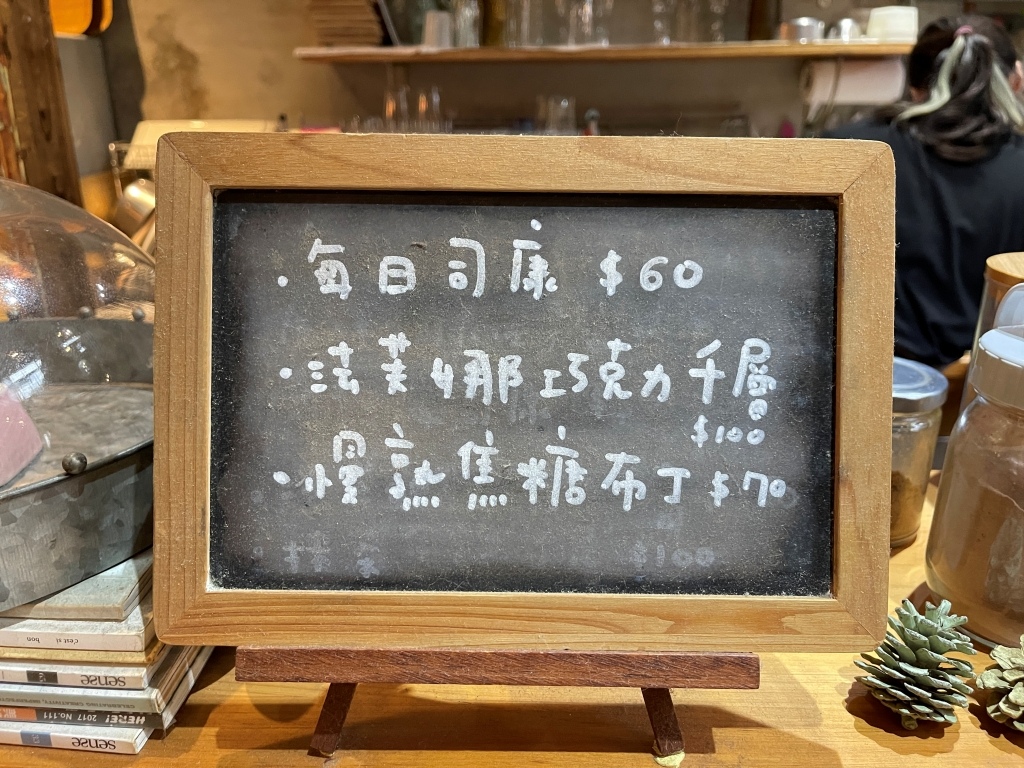 ·每日司康 $60
·法芙娜巧克力千層
$100
·慢熟焦糖布丁 $70
$100
c'est si bon
sense
HERE! 2017 No.111
sense